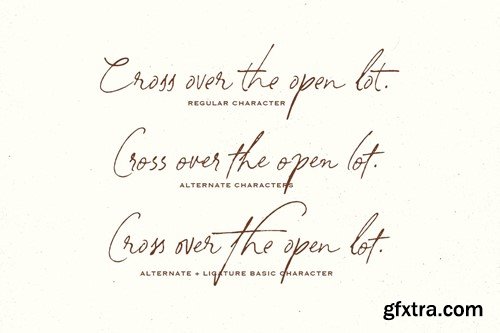 Cross over the open lot.
REGULAR CHARACTER
Cross over the open lot.
ALTERNATE CHARACTERS
Cross over the open lot.
ALTERNATE + LIGATURE BASIC CHARACTER
gfxtra.com